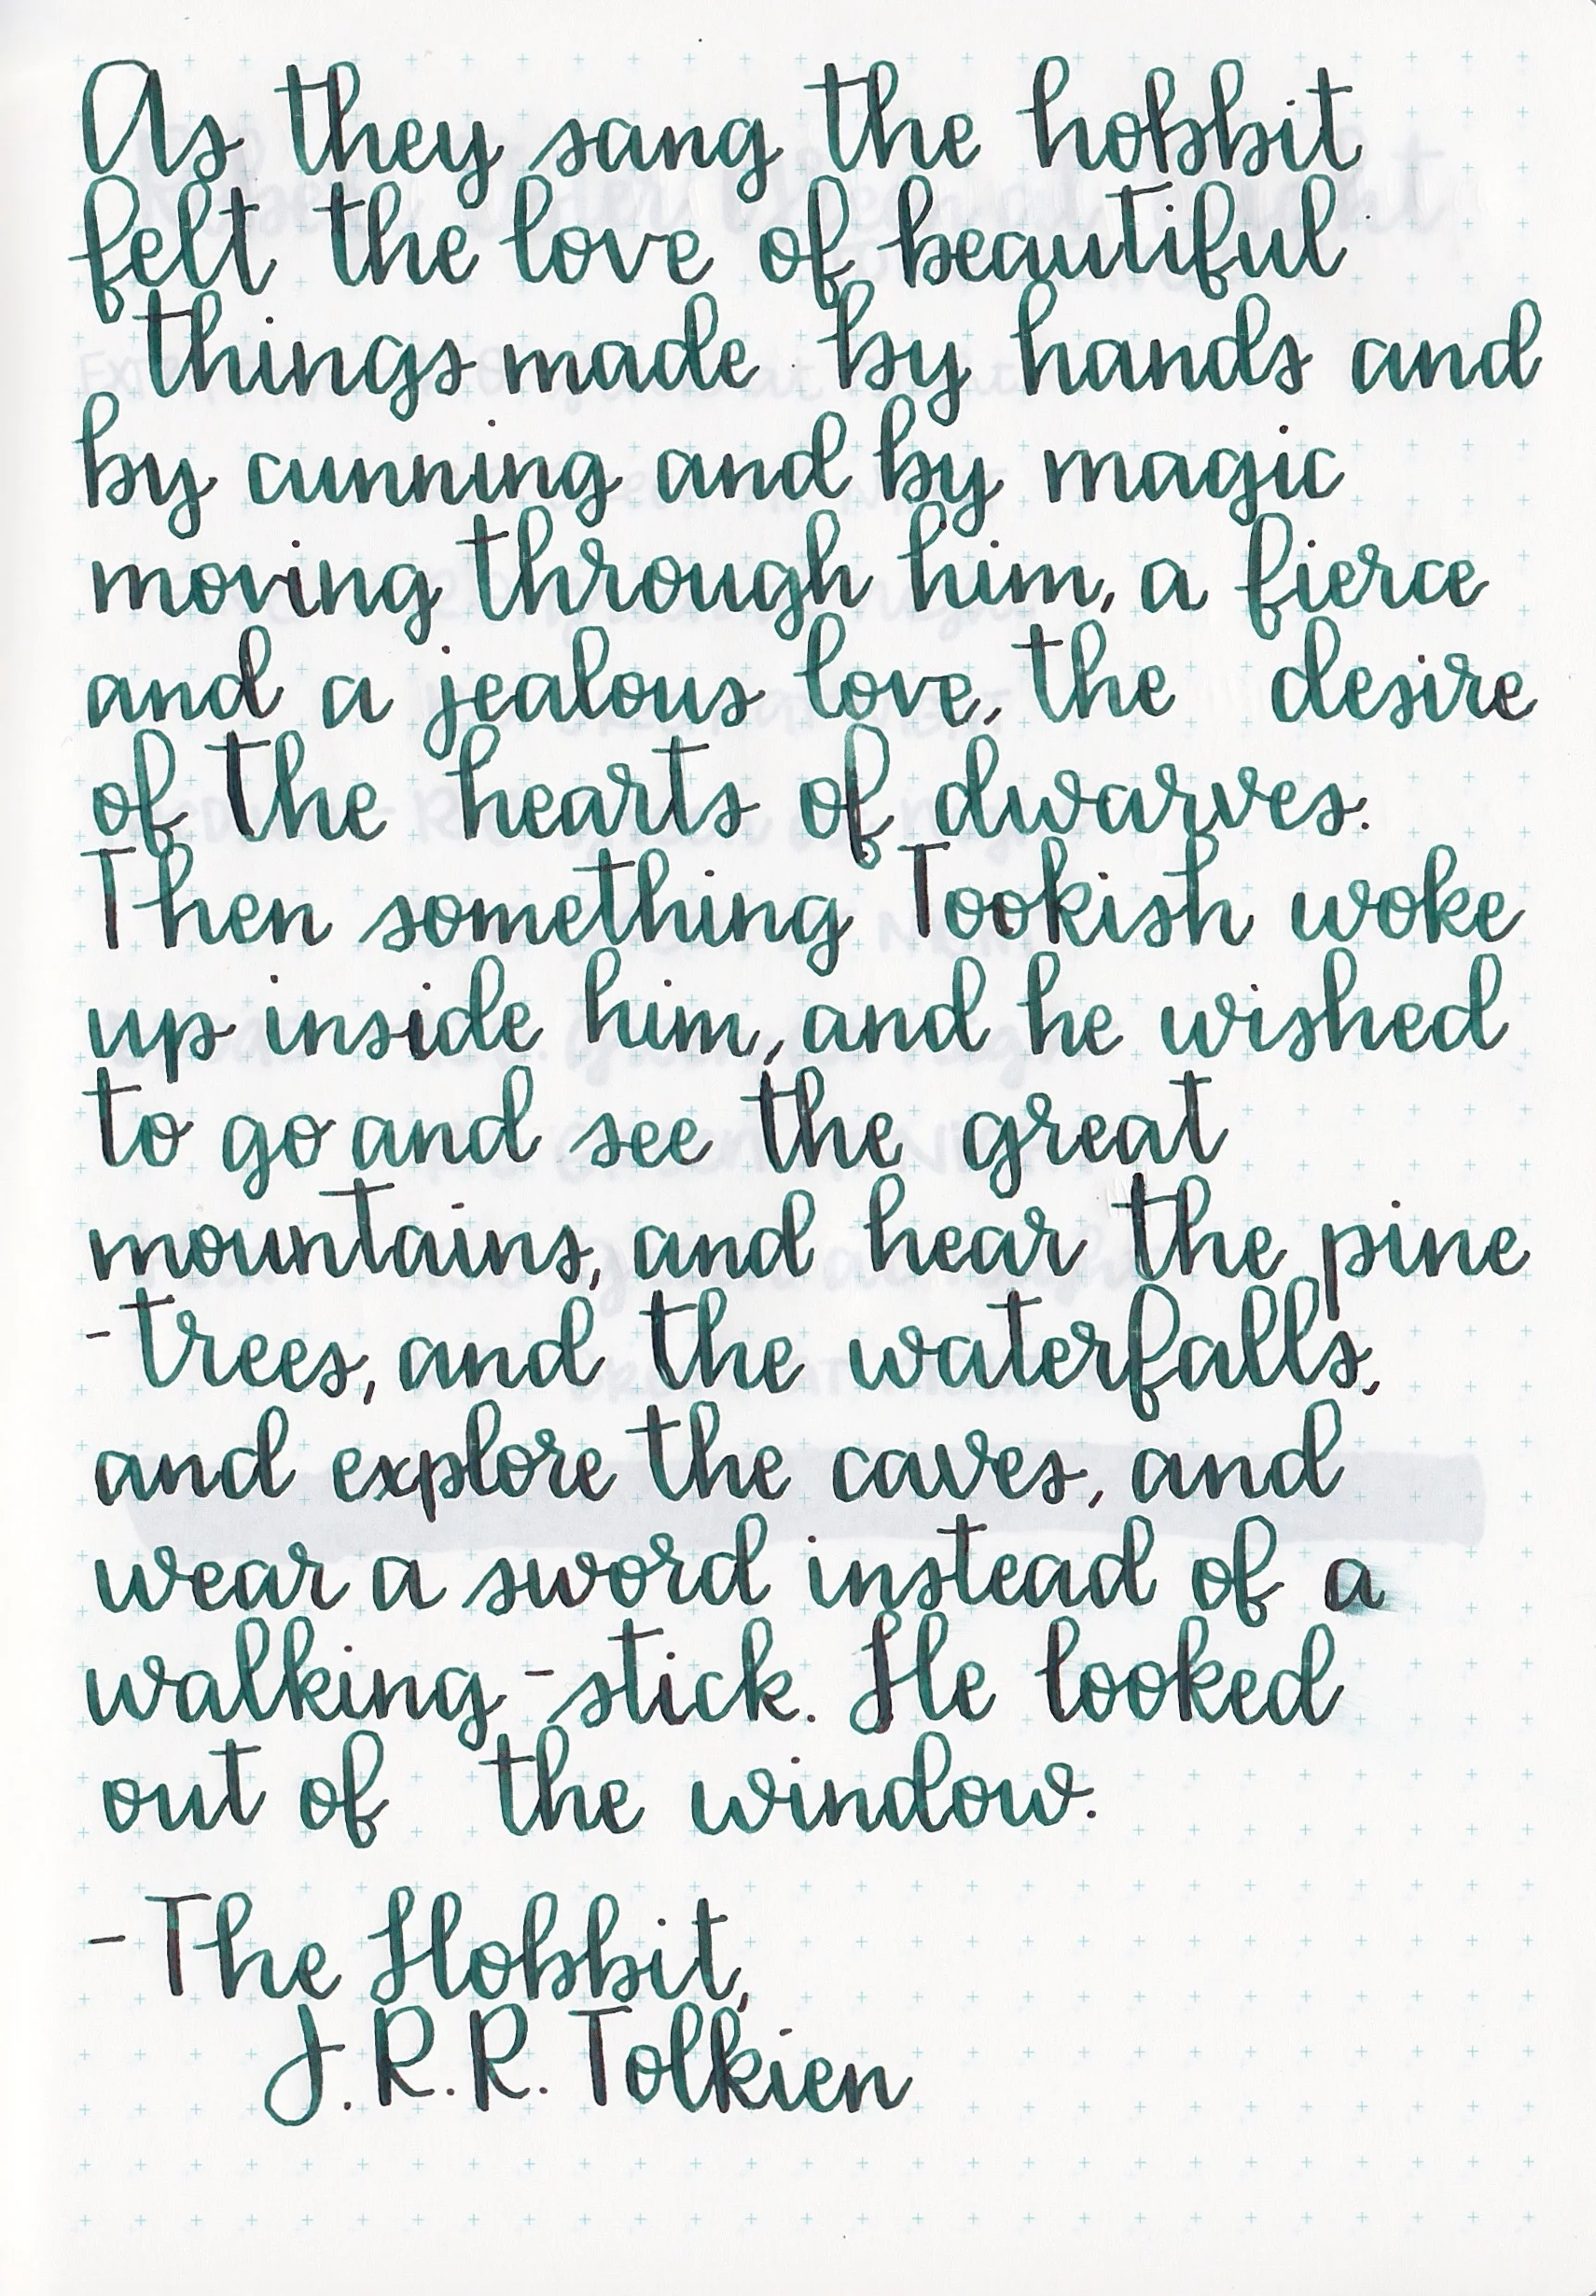 As they sang the hobbit
felt the love of beautiful
things made by hands and
by cunning and by magic
moving through him, a fierce
and a jealous love, the desire
of the hearts of dwarves.
Then something Tookish woke
up inside him, and he wished
to go and see the great
mountains, and hear the pine
-trees, and the waterfalls,
and explore the caves, and
wear a sword instead of a
walking-stick. He looked
out of the window.
-The Hobbit,
J.R.R. Tolkien